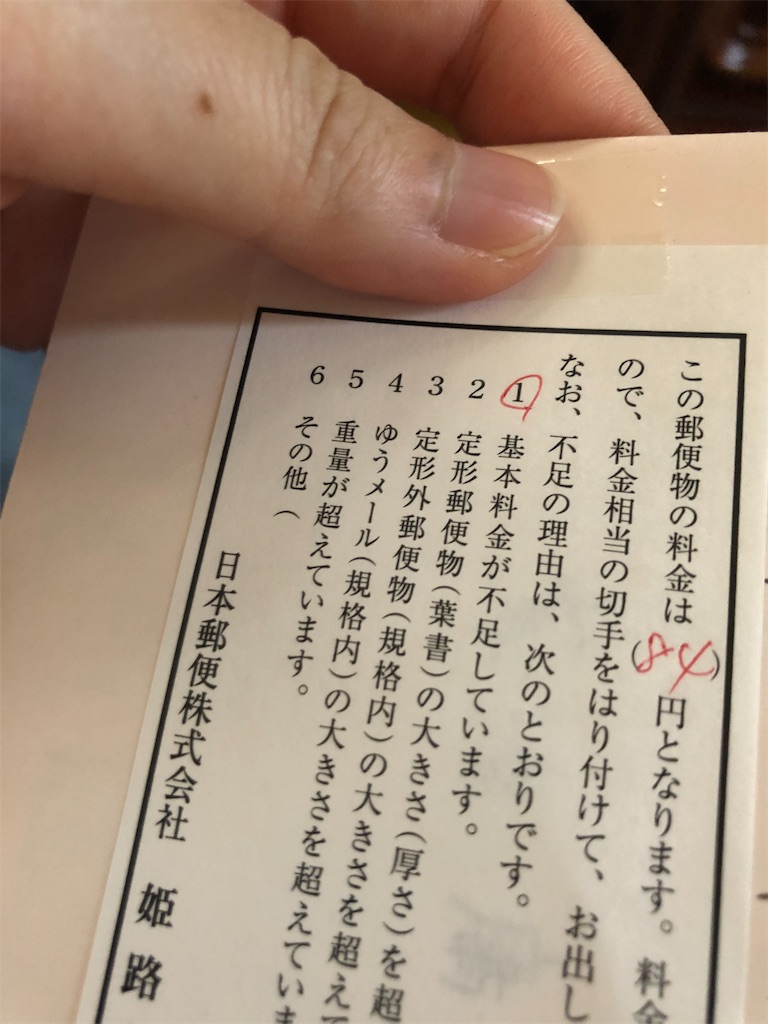 この郵便物の料金は(84)円となります。料金
ので、料金相当の切手をはり付けて、お出し
なお、不足の理由は、次のとおりです。
1 基本料金が不足しています。
2 定形郵便物(葉書)の大きさ(厚さ)を超
3 定形外郵便物(規格内)の大きさを超えて
4 ゆうメール(規格内)の大きさを超えていま
5 重量が超えています。
6 その他(
日本郵便株式会社 姫路